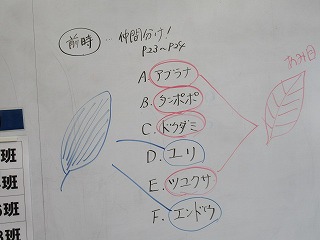 前時 … 仲間分け!
P.23~P.24
A. アブラナ
B. タンポポ
C. ドクダミ
D. ユリ
E. ツユクサ
F. エンドウ
班
班
班
班